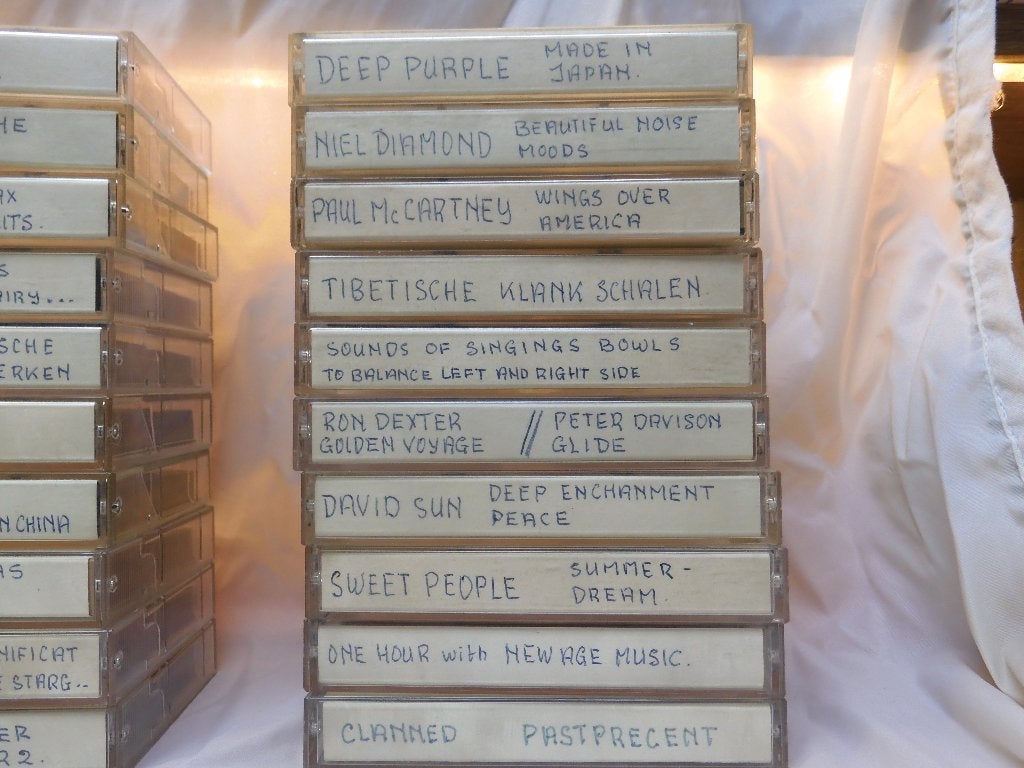 HE
AX
ITS.
S
AIRY...
SCHE
ERKEN
N CHINA
AS
NIFICAT
E STARG..
ER
R 2.
DEEP PURPLE MADE IN
JAPAN.
NIEL DIAMOND BEAUTIFUL NOISE
MOODS
PAUL McCARTNEY WINGS OVER
AMERICA
TIBETISCHE KLANK SCHALEN
SOUNDS OF SINGINGS BOWLS
TO BALANCE LEFT AND RIGHT SIDE
RON DEXTER // PETER DAVISON
GOLDEN VOYAGE GLIDE
DAVID SUN DEEP ENCHANMENT
PEACE
SWEET PEOPLE SUMMER-
DREAM.
ONE HOUR with NEW AGE MUSIC.
CLANNED PASTPRECENT